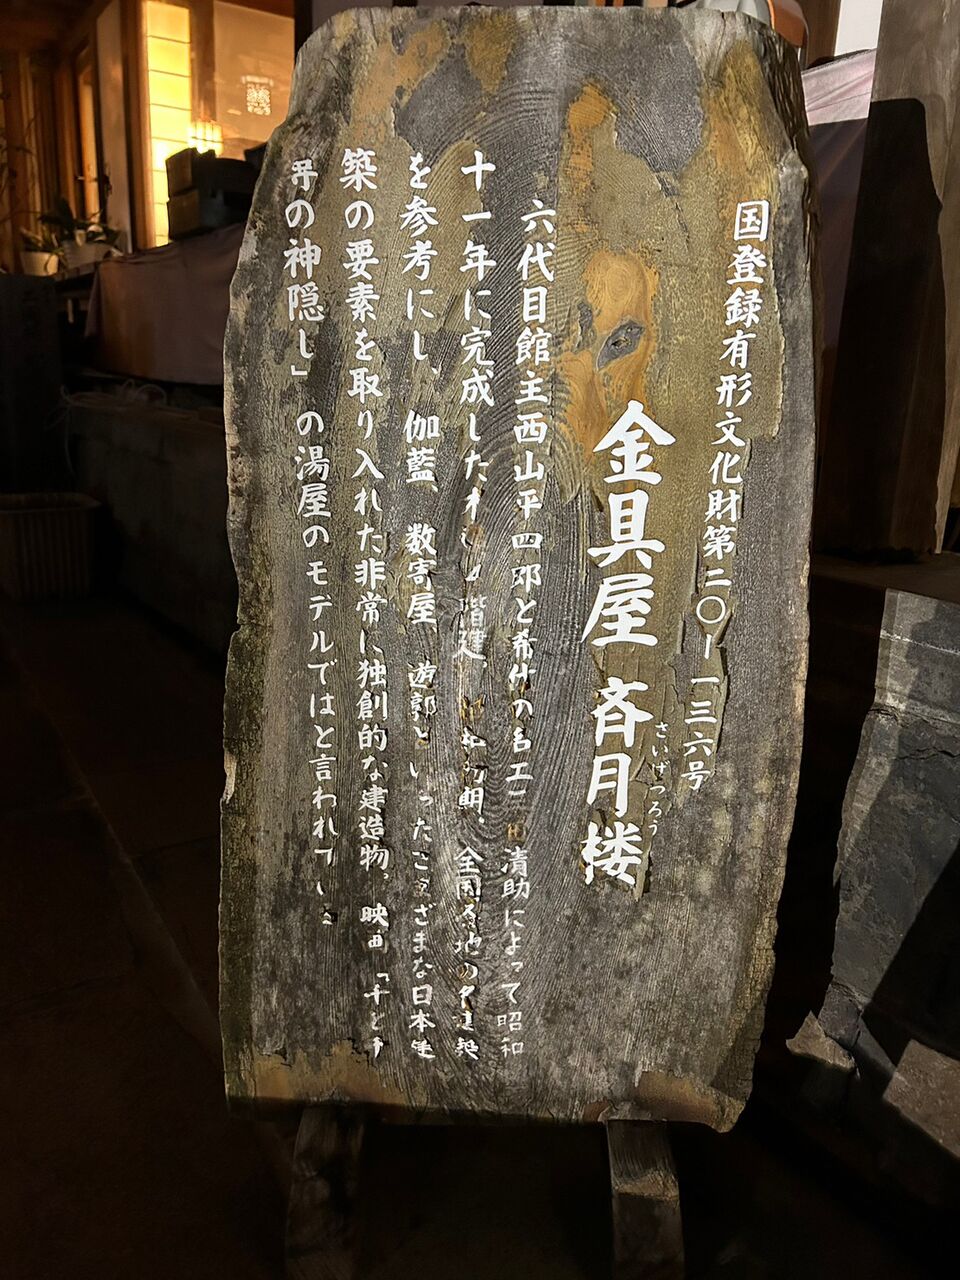 国登録有形文化財第二〇ー一三六号
金具屋 斉月楼
さいげつろう
六代目館主西山平四郎と希代の名工 清助によって昭和
十一年に完成した 階建。 全国各地の名建築
を参考にし、伽藍、数寄屋 遊郭といったさまざまな日本建
築の要素を取り入れた非常に独創的な建造物。映画「千と千
尋の神隠し」の湯屋のモデルではと言われてい